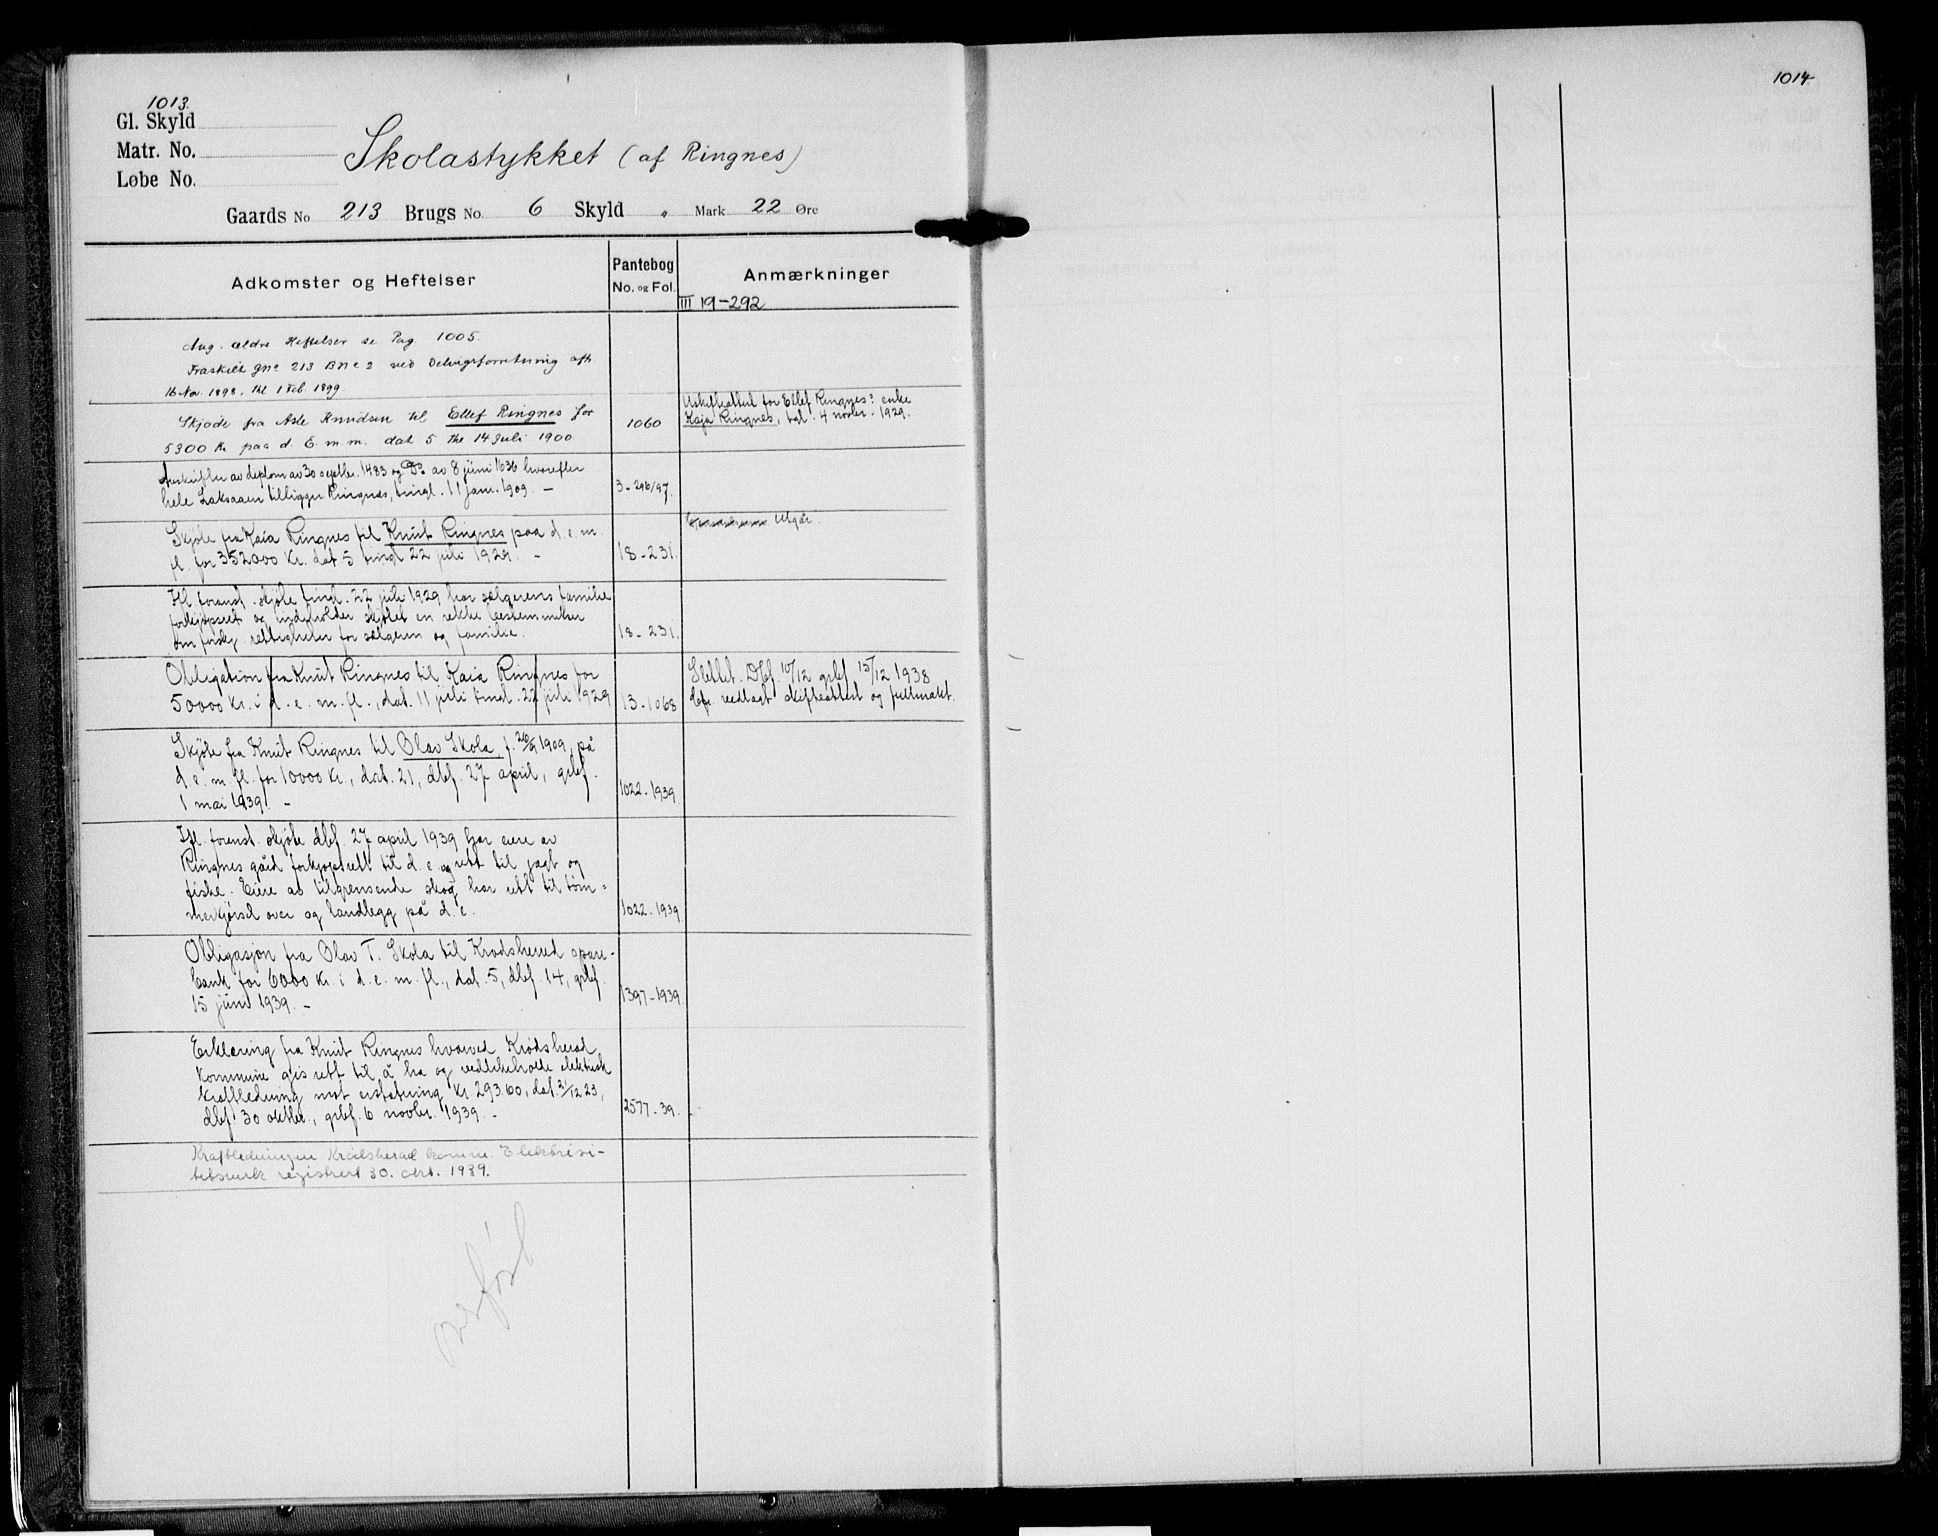 1013.
Gl. Skyld
Matr. No.
Løbe No.
Skolastykket (af Ringnes)
Gaards No 213 Brugs No. 6 Skyld " Mark 22 Øre
Adkomster og Heftelser
Pantebog
No. og Fol.
Anmærkninger
III 19-292
Ang. ældre Heftelser se Pag. 1005.
Fraskilt gno 213 Bno 2 ved Delingsforretning afh.
16 Nov. 1898, thl 1 Feb. 1899.
Skjøde fra Asle Knudsen til Ellef Ringnes for
5300 Kr paa d. E. m. m. dat 5 thl 14 Juli 1900.
1060
Uskifteattest for Ellef Ringnes: enke
Kaja Ringnes, tgl. 4 novbr. 1929.
Avskrifter av diplom av 30 septbr. 1483 og Do av 8 juni 1636 hvorefter
hele Laksaaen tilligger Ringnes, tingl. 11 jan. 1909. -
3-296/97.
Skjøte fra Kaia Ringnes til Knut Ringnes paa d. e. m.
fl. for 352000 Kr. dat 5 tingl 22 juli 1929. -
18-231.
Utgår.
Ifl. foranst. skjøte tingl. 22 juli 1929 har sælgerens familie
forkjøpsret og indeholder skjøtet en rekke bestemmelser
om forskj. rettigheter for sælgeren og familie.
18-231.
Obligation fra Knut Ringnes til Kaia Ringnes for
50000 Kr. i d. e. m. fl., dat. 11 juli tingl. 22 juli 1929
13-1068
Slettet. Dbf. 10/12 grbf 15/12 1938
Efr. vedlagt skifteattest og fullmakt.
Skjøte fra Knut Ringnes til Olav Skola, f. 26/9 1909, på
d. e. m. fl. for 10000 Kr., dat. 21, dbf. 27 april, grbf.
1 mai 1939. -
1022-1939.
Ifl. foranst. skjøte dbf. 27 april 1939 har eiere av
Ringnes gård forkjøpsrett til d. e. og rett til jagt og
fiske. Eiere av tilgrensende skog har rett til tøm=
merkjørsel over og landlegg på d. e.
1022-1939.
Obligasjon fra Olav T. Skola til Krødsherred spare-
bank for 6000 Kr. i d. e. m. fl., dat. 5, dbf. 14, grbf.
15 juni 1939. -
1397-1939.
Erklæring fra Knut Ringnes hvorved Krødsherad
kommune gis rett til å ha og vedlikeholde elektrisk
kraftledning mot erstatning kr. 293.60, dat. 3/12 23,
dbf. 30 oktbr., grbf. 6 novbr. 1939. -
2577-39.
Kraftledningen Krødsherad komm. Elektrisi-
tetsverk registrert 30. okt. 1939.
overført
1014